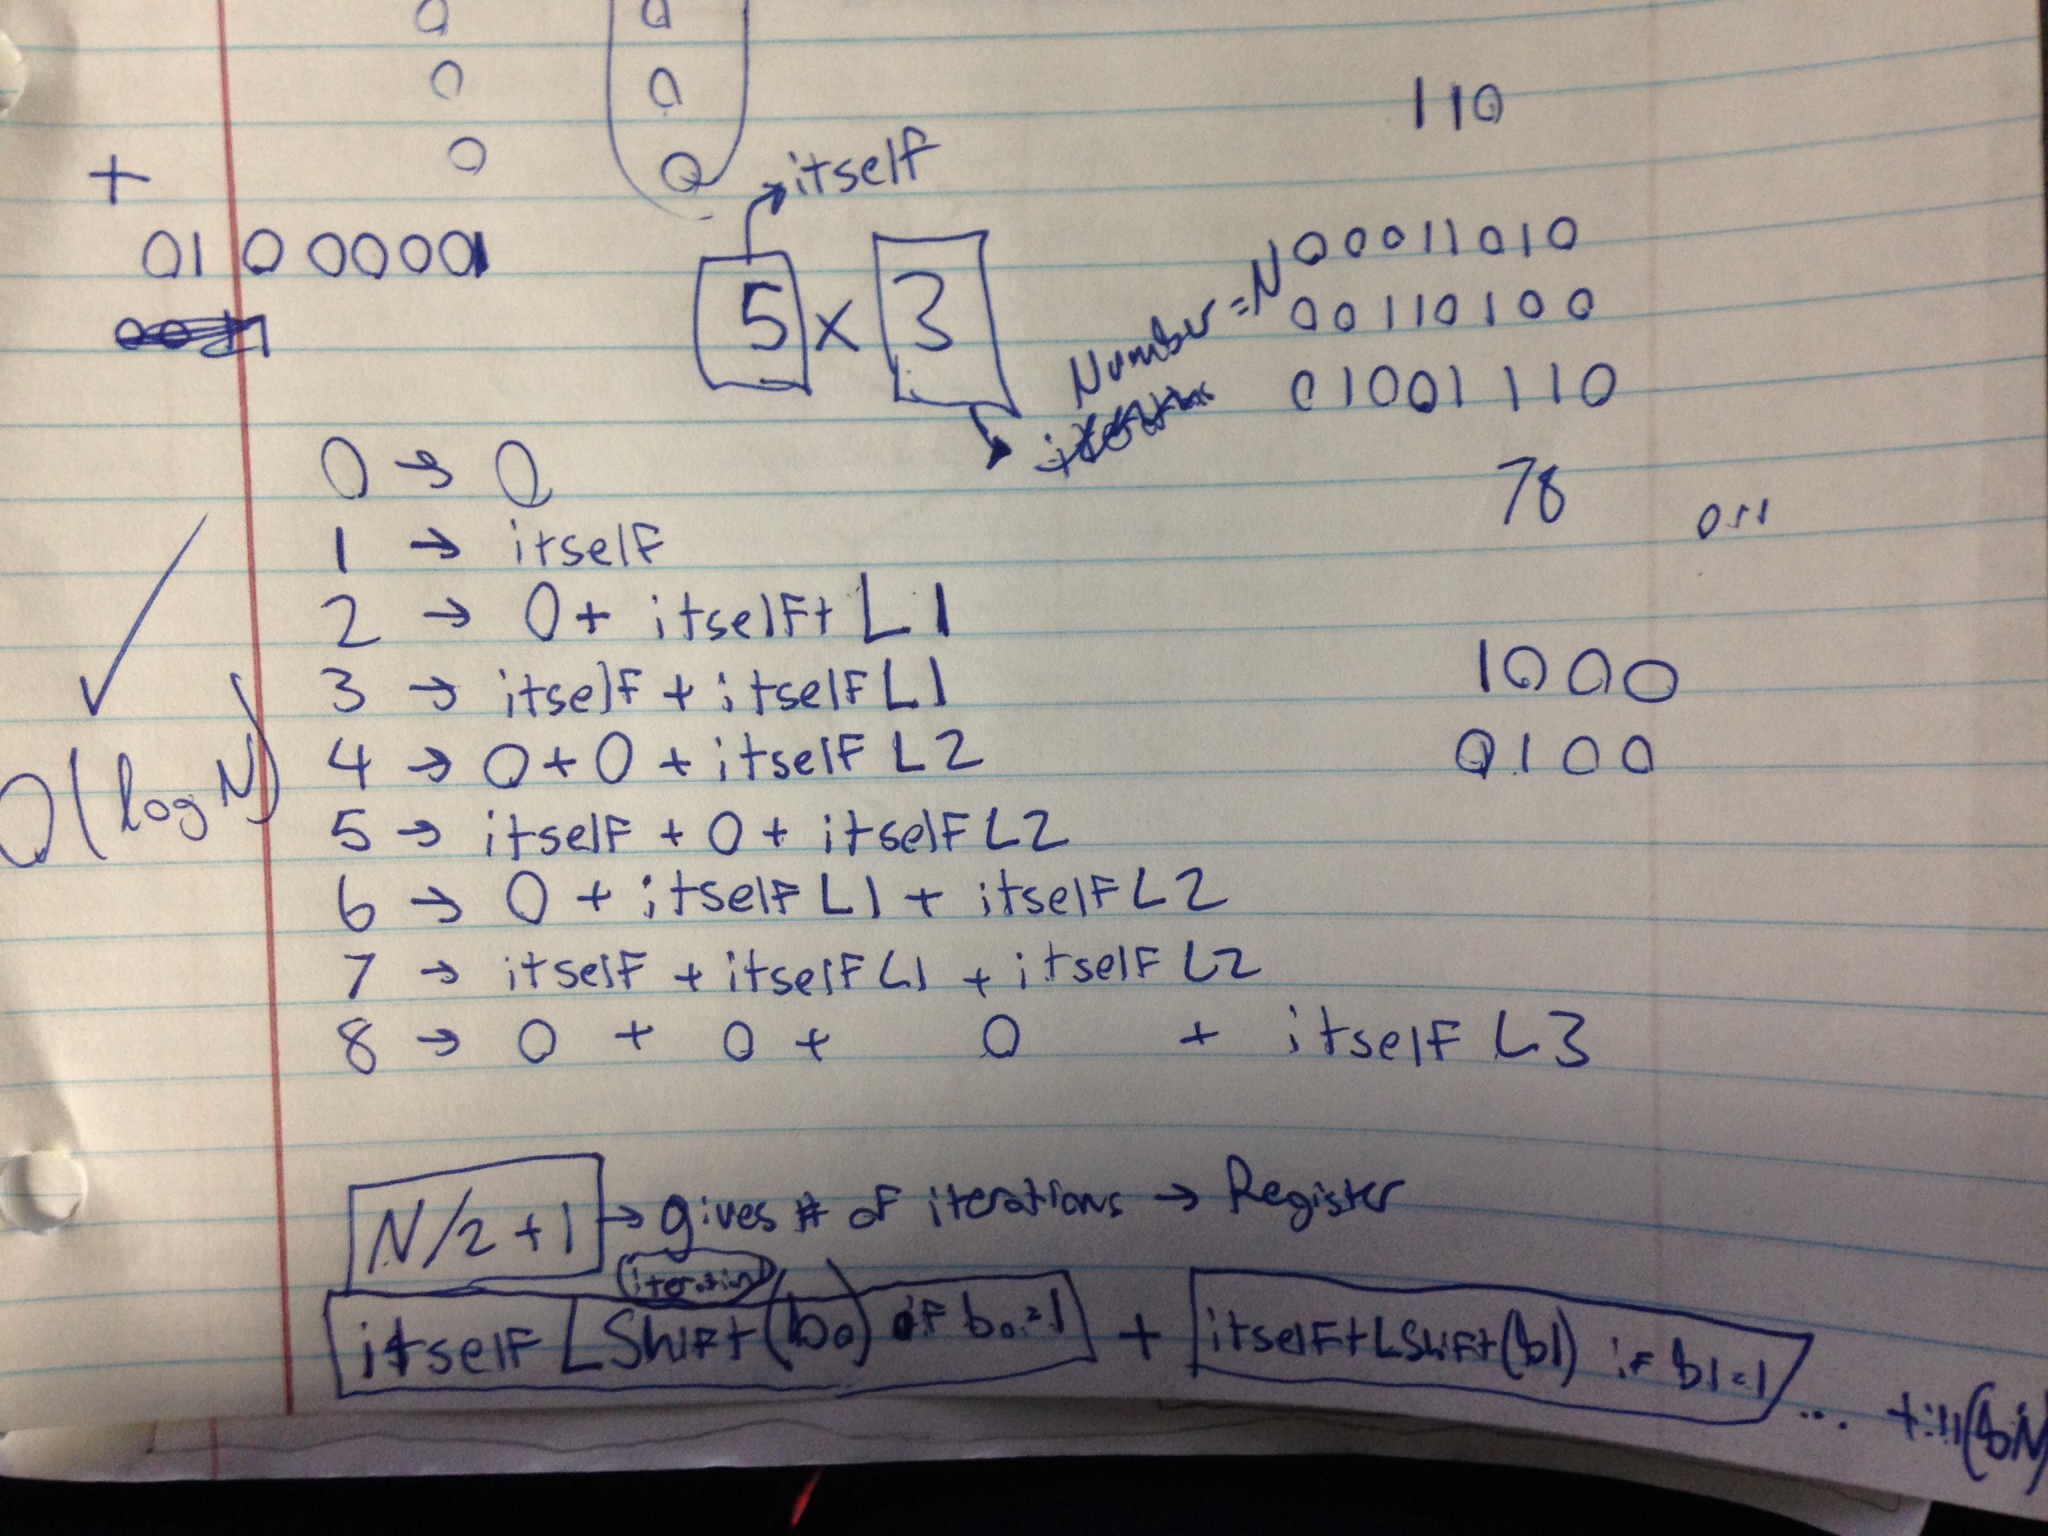 0 0
0 0
+ 0 0
01000001
itself
5 x 3
Number = N
110
00011010
00110100
01001110
78
011
1000
0100
O(log N)
0 → 0
1 → itself
2 → 0 + itself+ L1
3 → itself + itself L1
4 → 0 + 0 + itself L2
5 → itself + 0 + itself L2
6 → 0 + itself L1 + itself L2
7 → itself + itself L1 + itself L2
8 → 0 + 0 + 0 + itself L3
N/2 + 1 → gives # of iterations → Register
(iteration)
itself LShift(b0) if b0=1 + itself+LShift(b1) if b1=1 ... +